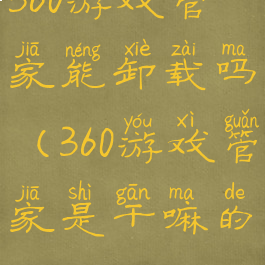 360游戏管
jiā néng xiè zài ma
家能卸载吗
yóu xì guǎn
(360游戏管
jiā shì gān ma de
家是干嘛的